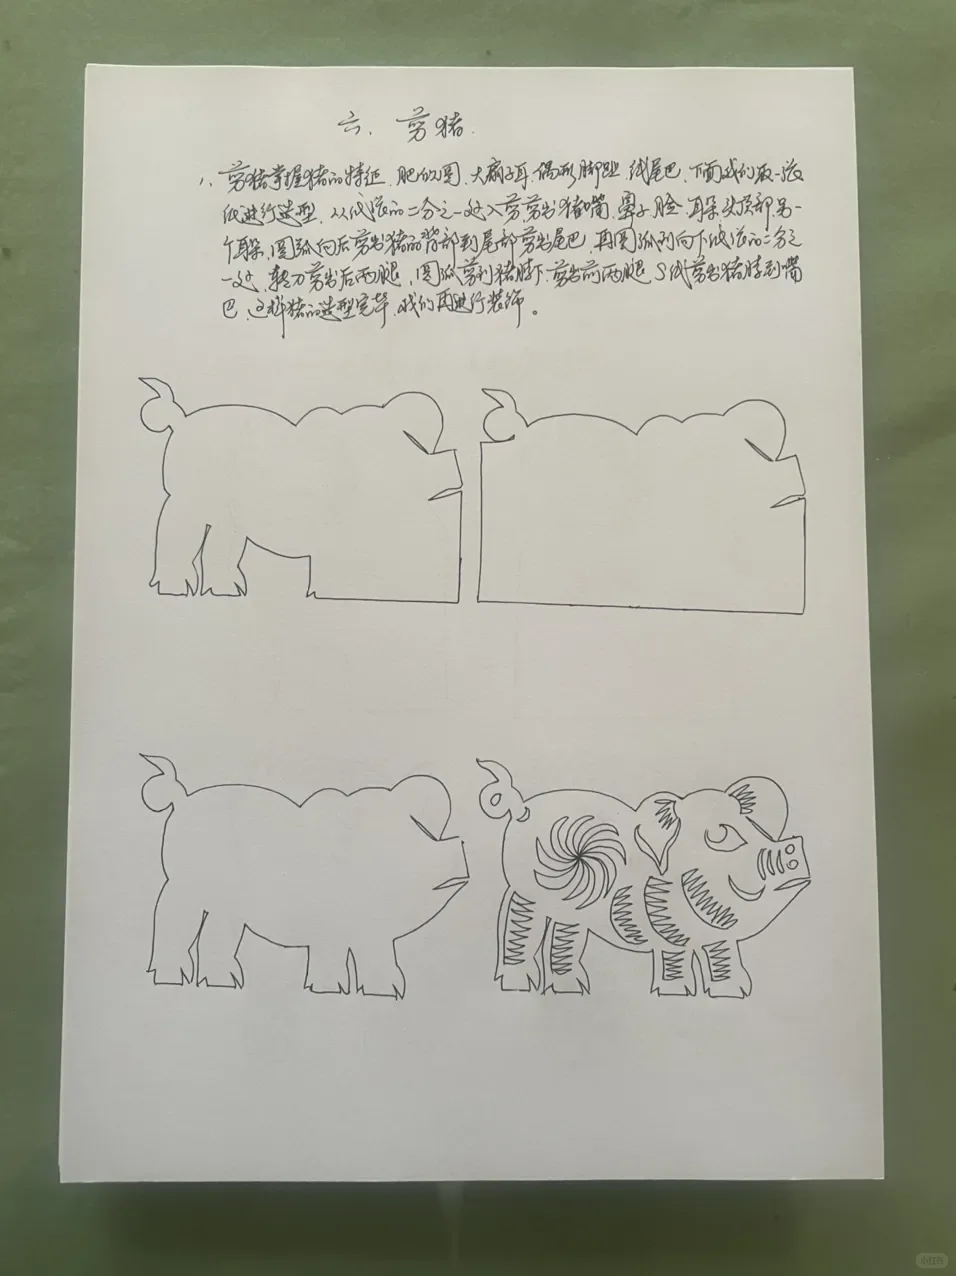 六、剪猪.
1、剪猪掌握猪的特征、肥的圆、大扇子耳、偶形脚趾、线尾巴、下面我们取一张
纸进行造型、从纸张的二分之一处入剪剪出猪嘴、鼻子、脸、耳朵、头顶部、另一
个耳朵、圆弧向后剪出猪的背部到尾部剪出尾巴、再圆弧剪向下纸张的二分之
一处、转刀剪出后两腿、圆弧剪到猪脖下、剪出前两腿、S线剪出猪脖到嘴
巴、这样猪的造型完毕、我们再进行装饰。
小红书